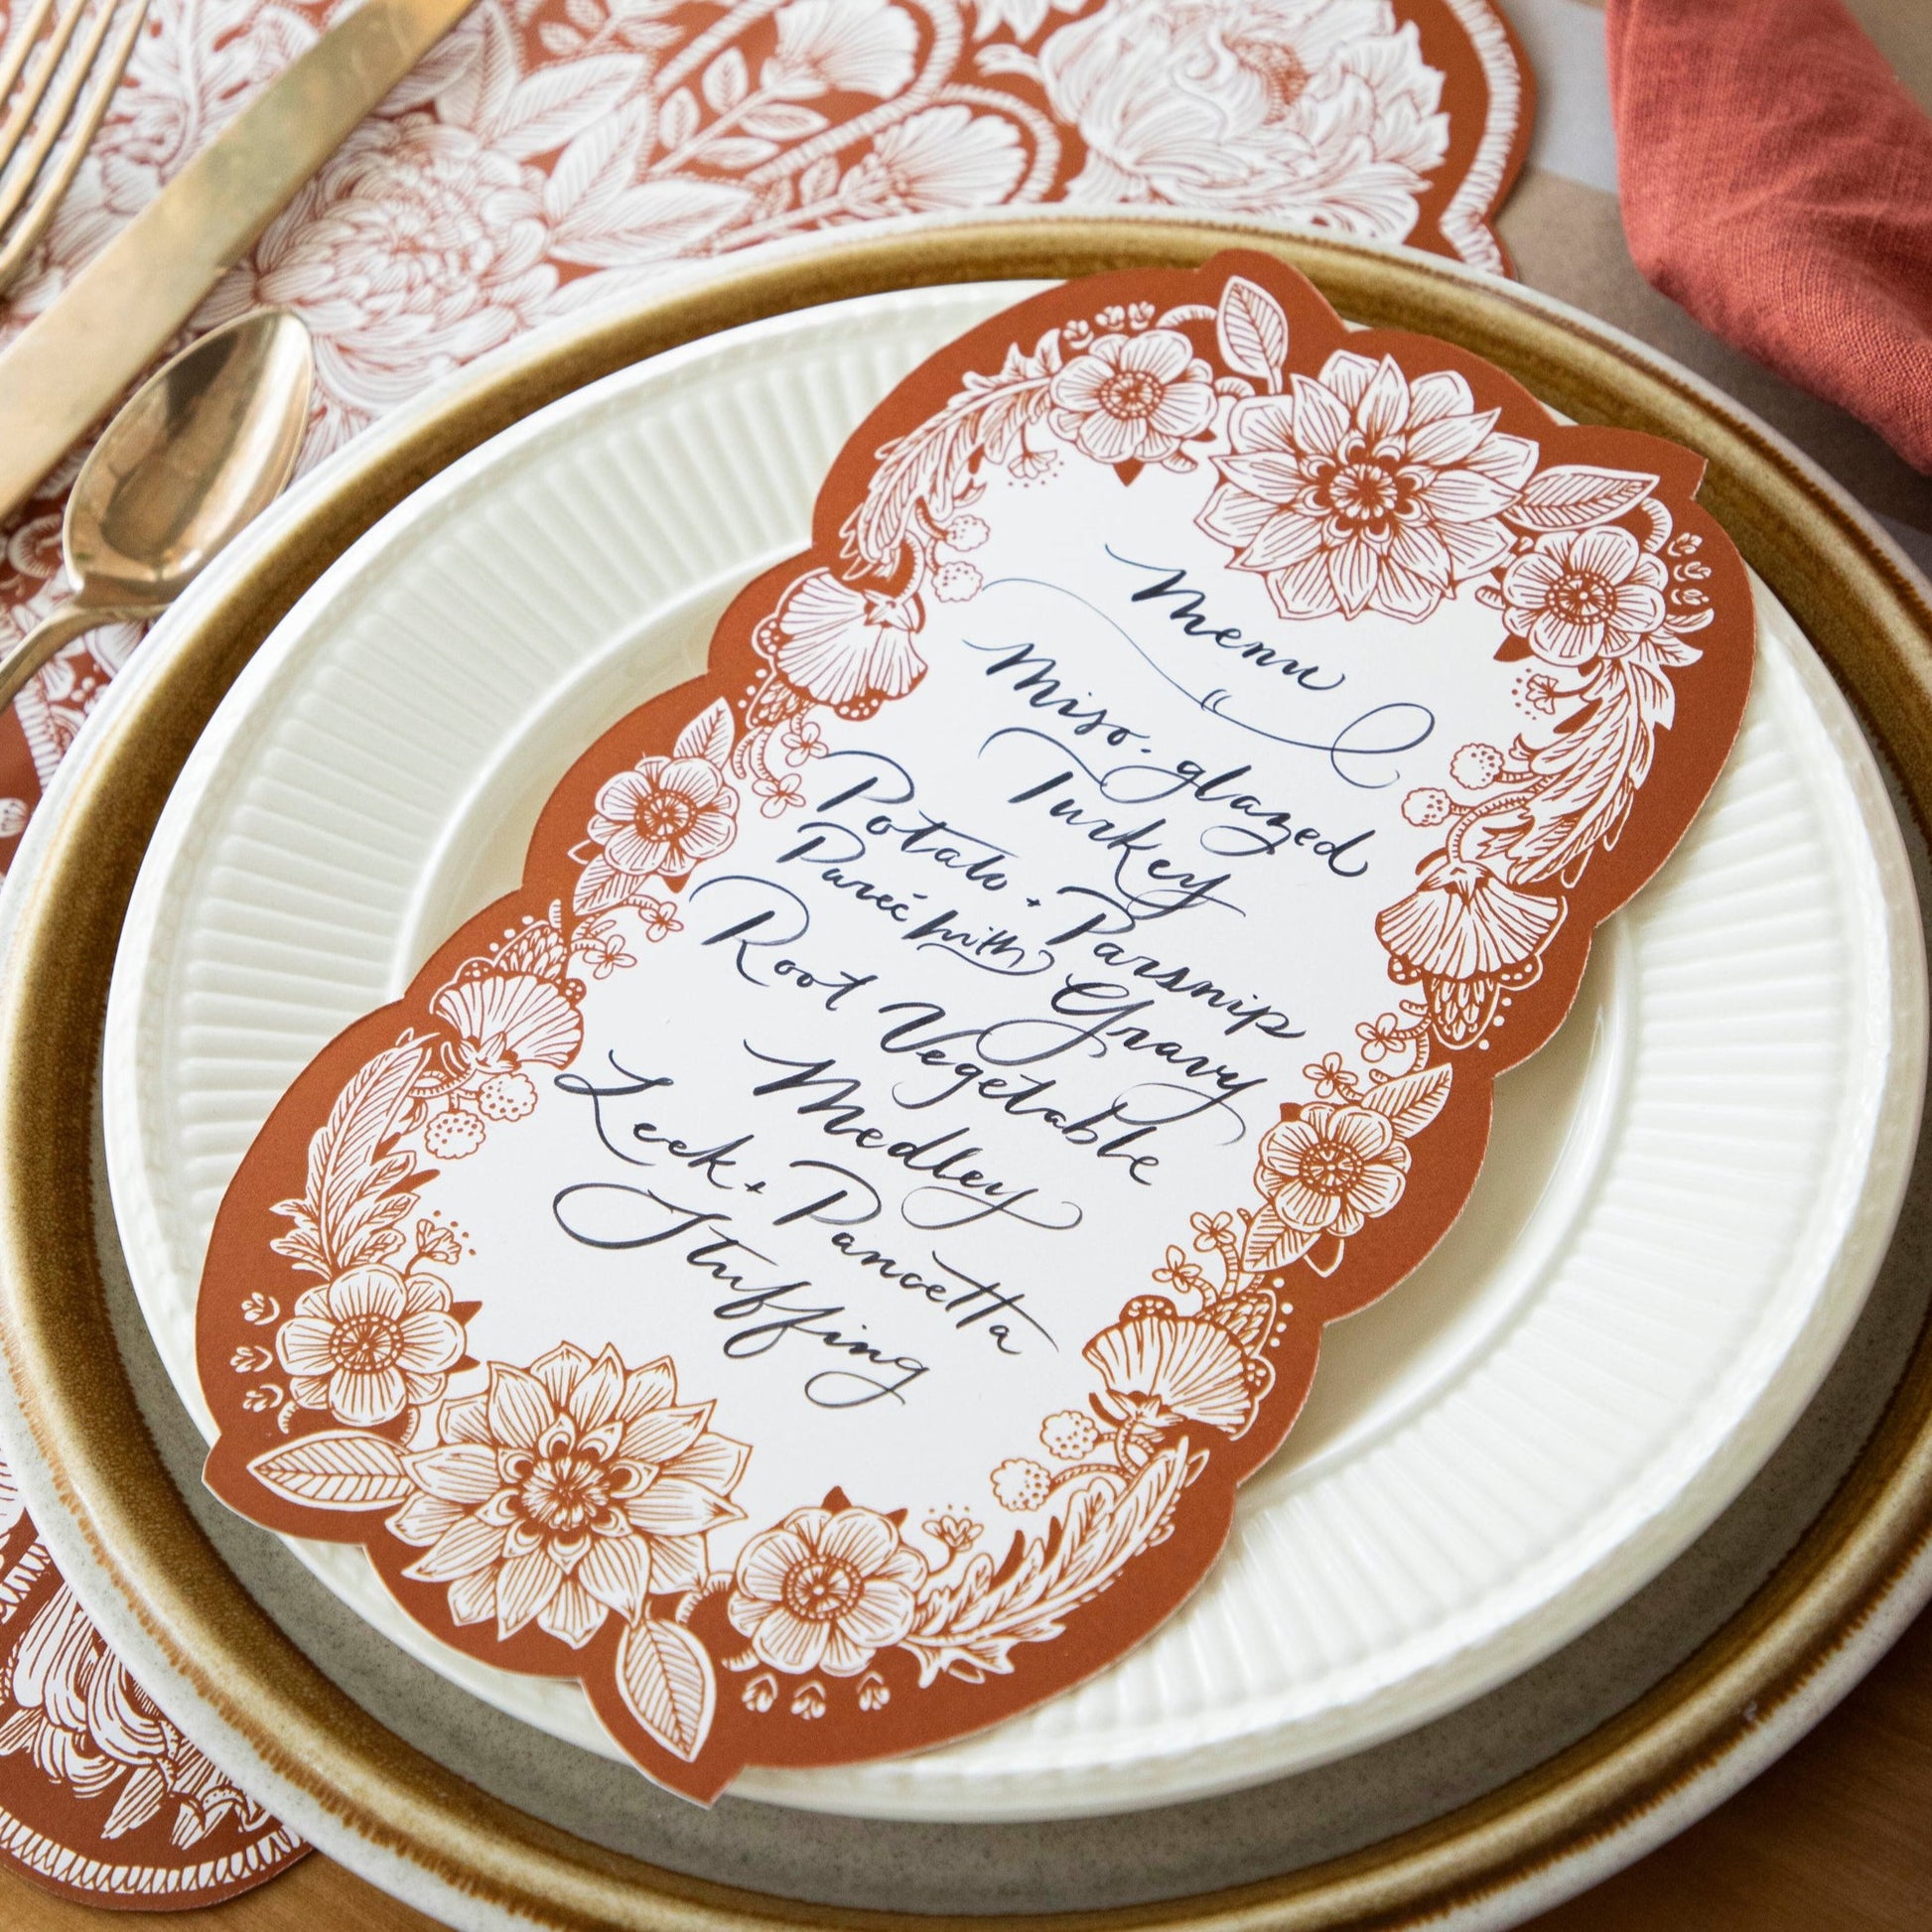 Menu
Miso-glazed
Turkey
Potato + Parsnip
Pureé with Gravy
Root Vegetable
Medley
Leek + Pancetta
Stuffing